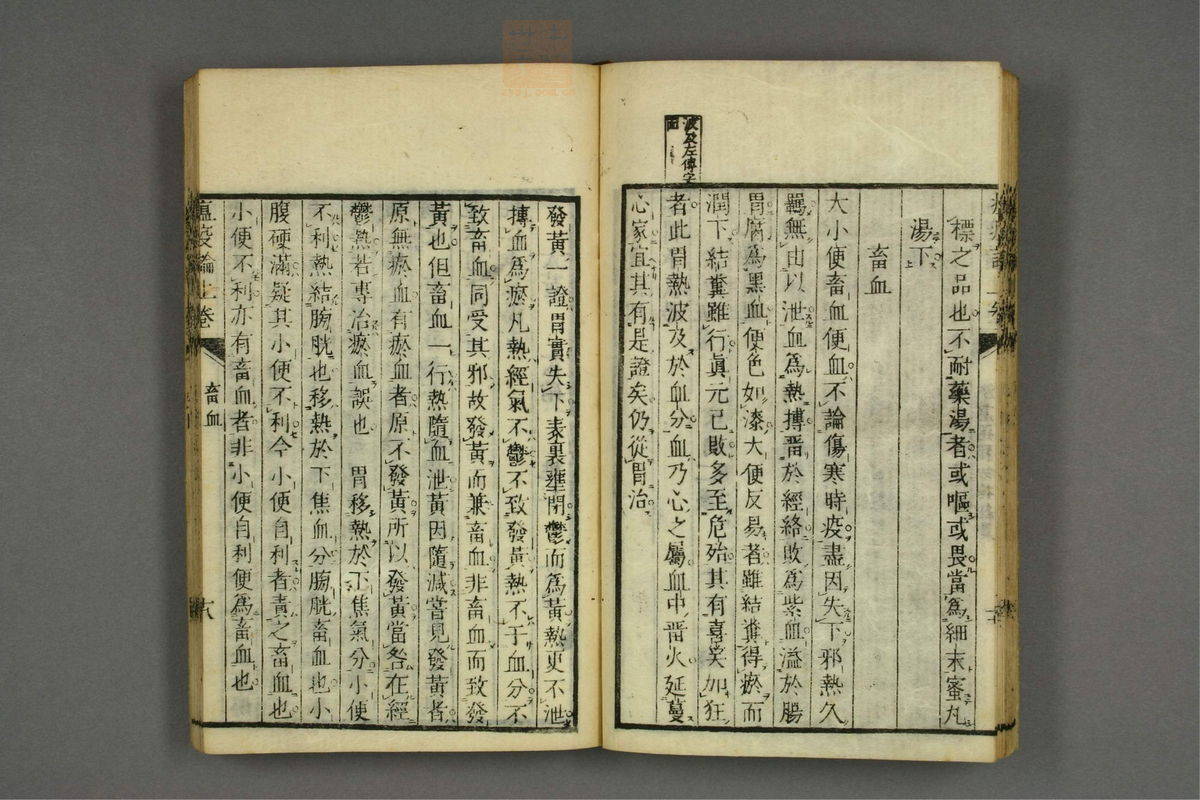 波及左傳字
標之品也不耐藥湯者或嘔或畏當為細末蜜丸
湯下
畜血
大小便畜血便血不論傷寒時疫盡因失下邪熱久
羈無由以泄血為熱搏畱於經絡敗為紫血溢於腸
胃腐為黑血便色如漆大便反易者雖結糞得瘀而
潤下結糞雖行真元已敗多至危殆其有喜笑如狂
者此胃熱波及於血分血乃心之屬血中畱火延蔓
心家宜其有是證矣仍從胃治
發黃一證胃實失下表裏壅閉鬱而為黃熱更不泄
搏血為瘀凡熱經氣不鬱不致發黃熱不干血分不
致畜血同受其邪故發黃而兼畜血非畜血而致發
黃也但畜血一行熱隨血泄黃因隨減嘗見發黃者
原無瘀血有瘀血者原不發黃所以發黃當咎在經
鬱熱若專治瘀血誤也 胃移熱於下焦氣分小便
不利熱結膀胱也移熱於下焦血分膀胱畜血也小
腹硬滿疑其小便不利今小便自利者責之畜血也
小便不利亦有畜血者非小便自利便為畜血也
瘟疫論上卷 畜血 八